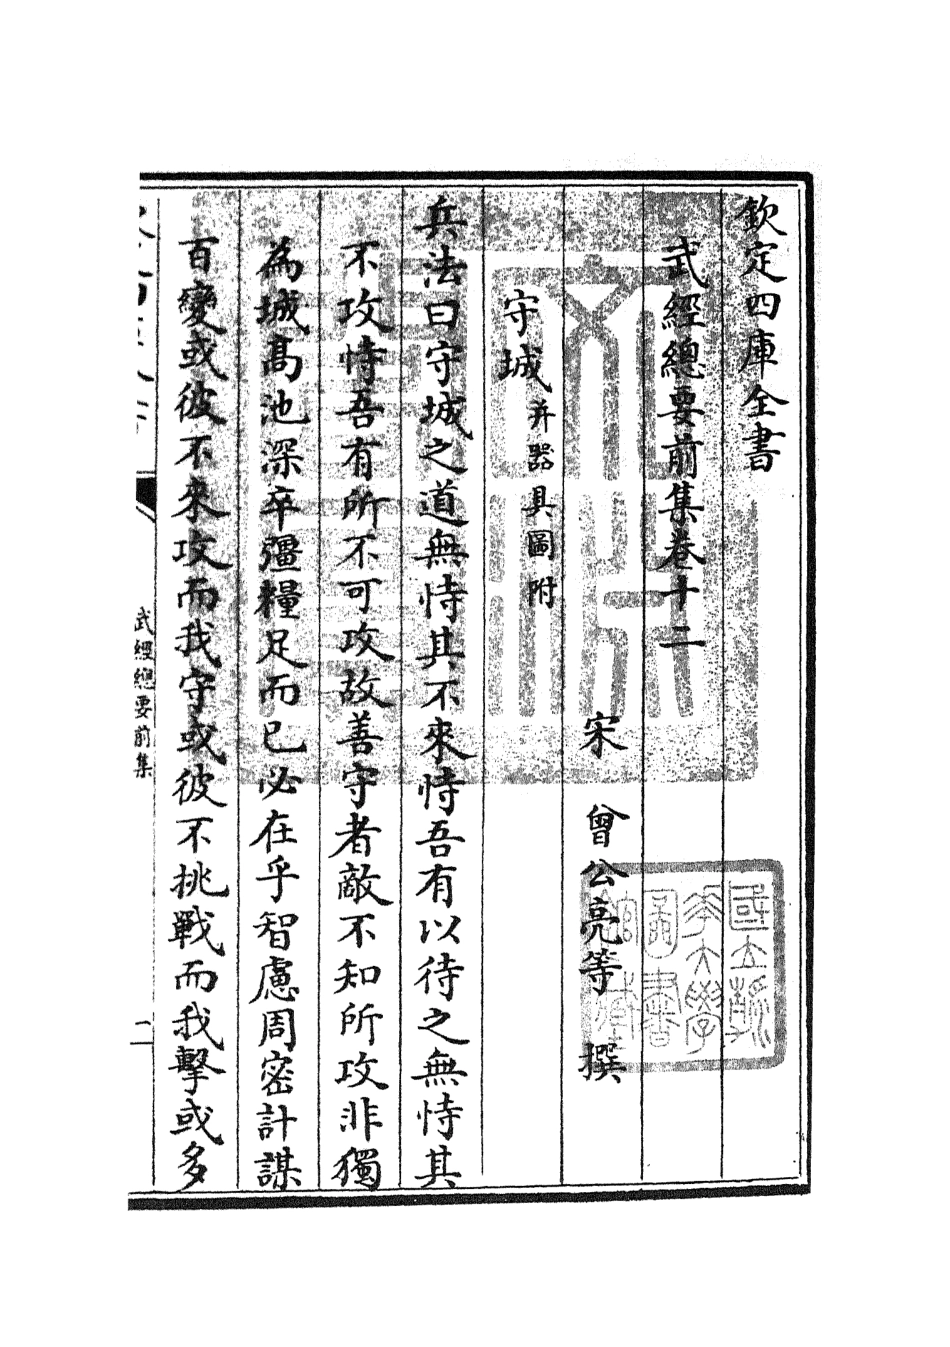 欽定四庫全書
武經總要前集卷十二
宋 曾公亮等 撰
守城并器具圖附
兵法曰守城之道無恃其不來恃吾有以待之無恃其
不攻恃吾有所不可攻故善守者敵不知所攻非獨
為城髙池深卒彊糧足而已必在乎智慮周密計謀
百變或彼不來攻而我守或彼不挑戰而我擊或多
武經總要前集
國立清華大學圖書館藏